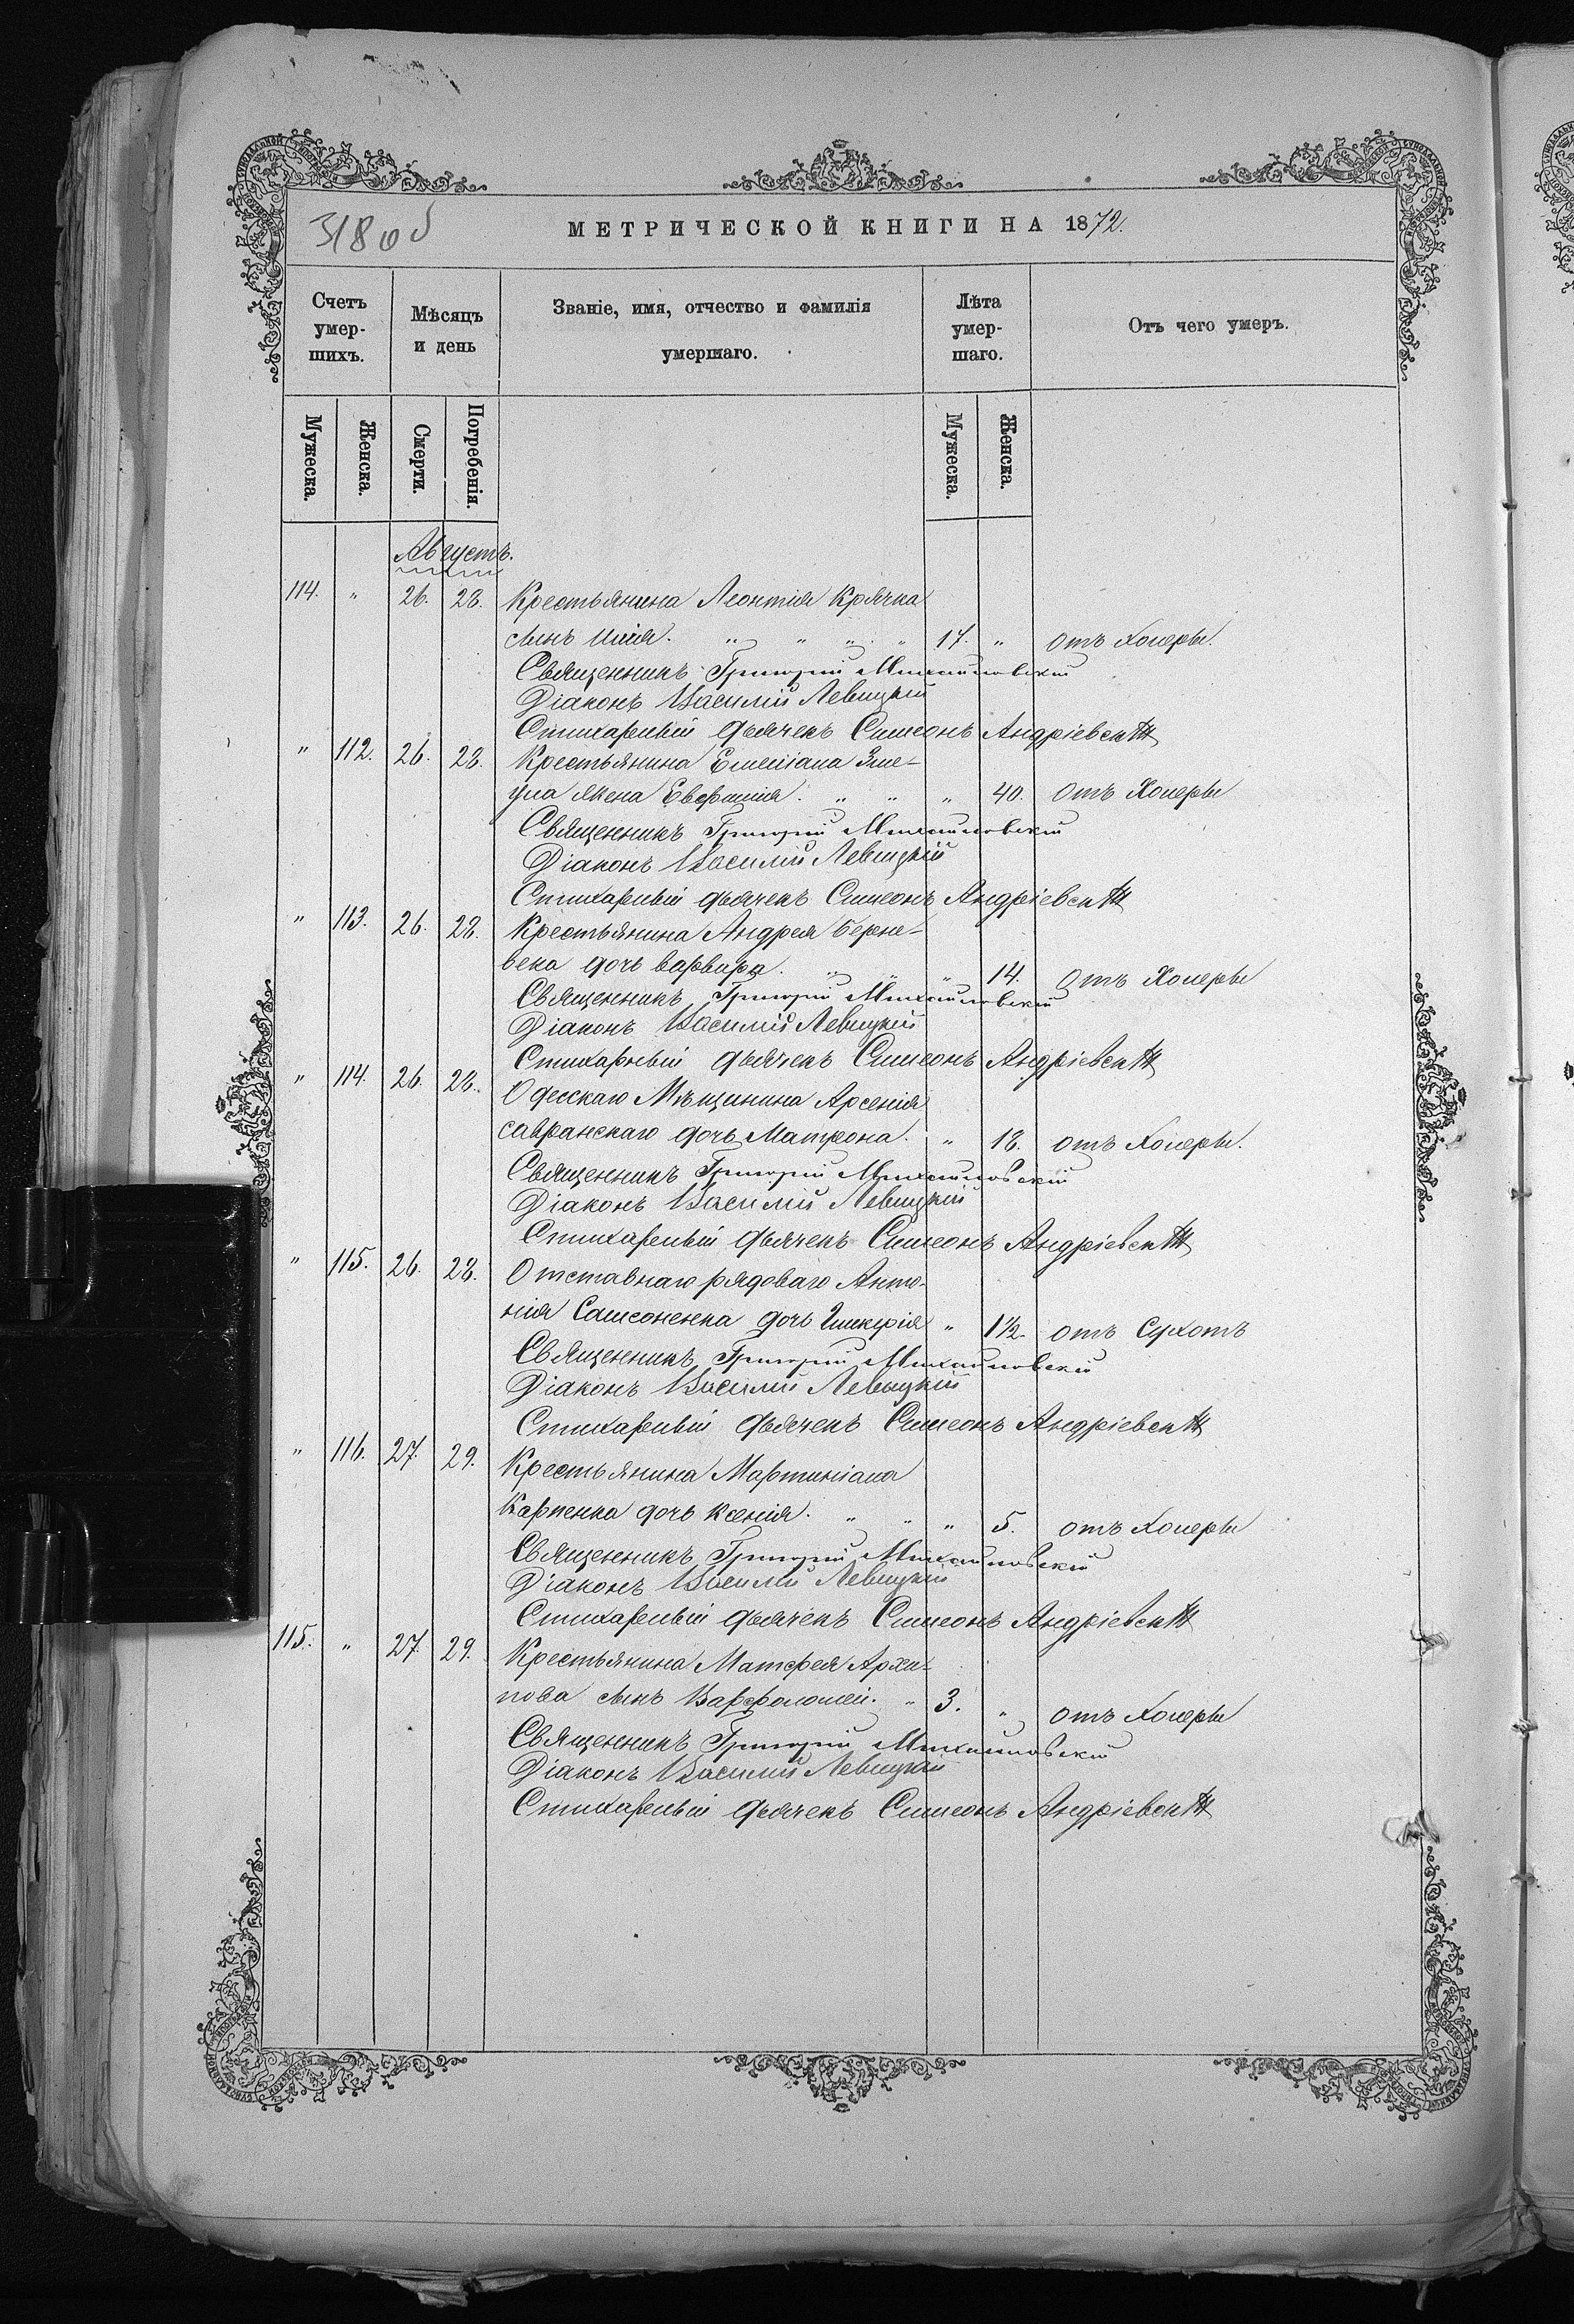 318 об
МЕТРИЧЕСКОЙ КНИГИ НА 1872.
Счетъ умер-шихъ.
Мѣсяцъ и день
Званіе, имя, отчество и фамилія умершаго.
Лѣта умер-шаго.
Отъ чего умеръ.
Мужеска.
Женска.
Смерти.
Погребенія.
Мужеска.
Женска.
Августъ.
114. " 26. 28. Крестьянина Леонтія Крячка
сынъ Илія. " " " " 17. " отъ Холеры.
Священникъ Григорій Михайловскій
Діаконъ Василій Левицкій
Стихарный дьячекъ Симеонъ Андріевскій
" 112. 26. 28. Крестьянина Емеліана Зме-
ула жена Евфимія. " " " 40. отъ Холеры
Священникъ Григорій Михайловскій
Діаконъ Василій Левицкій
Стихарный дьячекъ Симеонъ Андріевскій
" 113. 26. 28. Крестьянина Андрея Берне-
века дочь Варвара. " " " 14. отъ Холеры
Священникъ Григорій Михайловскій
Діаконъ Василій Левицкій
Стихарный дьячекъ Симеонъ Андріевскій
" 114. 26. 28. Одесскаго Мѣщинина Арсенія
Савранскаго дочь Матрона. " 18. отъ Холеры.
Священникъ Григорій Михайловскій
Діаконъ Василій Левицкій
Стихарный дьячекъ Симеонъ Андріевскій
" 115. 26. 28. Отставнаго рядоваго Анто-
нія Самсоненка дочь Гликерія " 1½. отъ Сухотъ
Священникъ Григорій Михайловскій
Діаконъ Василій Левицкій
Стихарный дьячекъ Симеонъ Андріевскій
" 116. 27. 29. Крестьянина Мартиніана
Карпенка дочь Ксенія. " " " 5. отъ Холеры
Священникъ Григорій Михайловскій
Діаконъ Василій Левицкій
Стихарный дьячекъ Симеонъ Андріевскій
115. " 27. 29. Крестьянина Матфея Архи-
пова сынъ Варфоломей. " 3. " отъ Холеры
Священникъ Григорій Михайловскій
Діаконъ Василій Левицкій
Стихарный дьячекъ Симеонъ Андріевскій